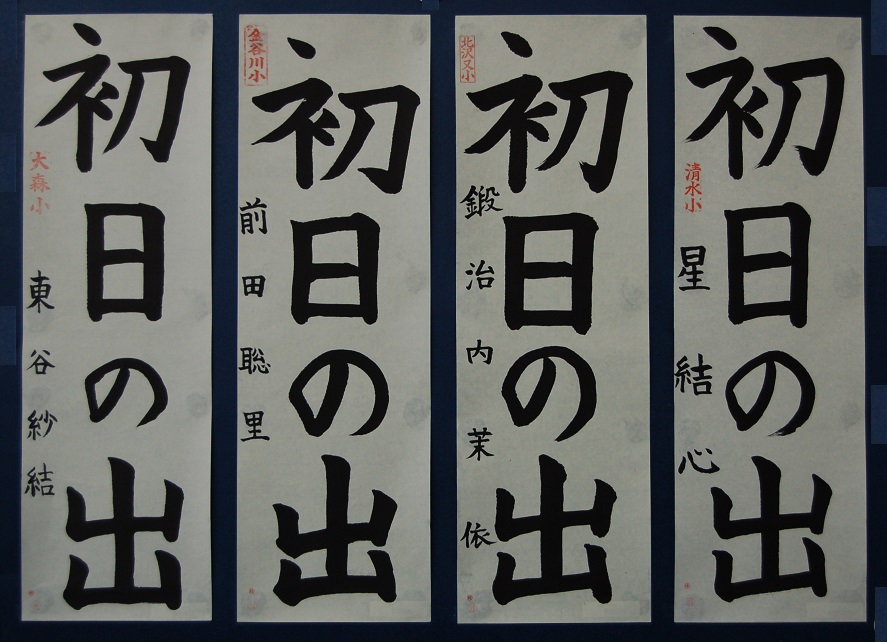 初日の出
大森小
東谷紗結
初日の出
金谷川小
前田聡里
初日の出
北沢又小
鍛治内茉依
初日の出
清水小
星結心